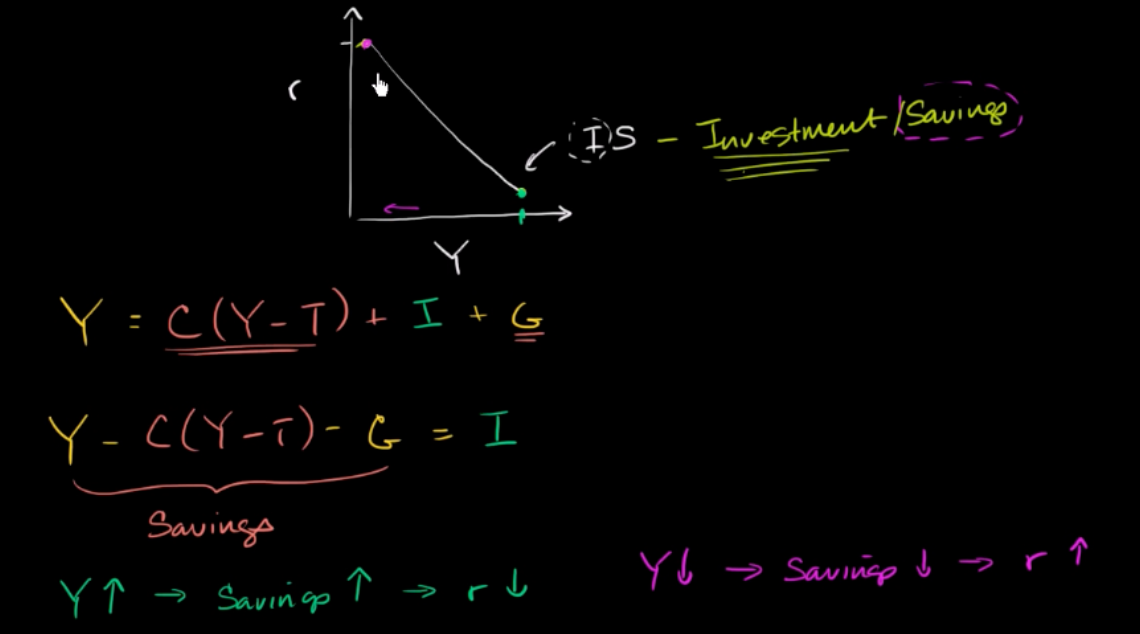 r
IS - Investment/Savings
Y
Y = C(Y-T) + I + G
Y - C(Y-T) - G = I
Savings
Y↑ → Savings ↑ → r ↓
Y↓ → Savings ↓ → r ↑